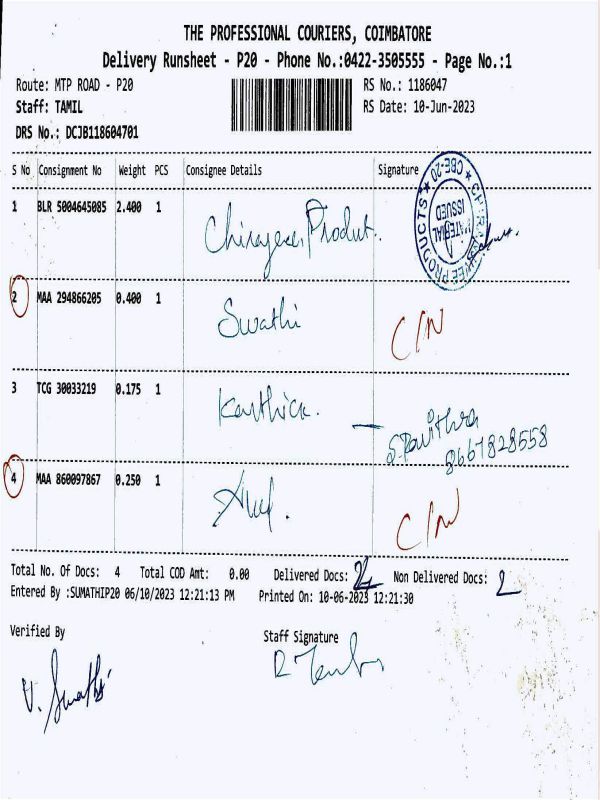 THE PROFESSIONAL COURIERS, COIMBATORE
Delivery Runsheet - P20 - Phone No.:0422-3505555 - Page No.:1
Route: MTP ROAD - P20 RS No.: 1186047
Staff: TAMIL RS Date: 10-Jun-2023
DRS No.: DCJB118604701
S No Consignment No Weight PCS Consignee Details Signature
1 BLR 5004645085 2.400 1
CBE-20 PRODUCTS MATERIAL ISSUED
2 MAA 294866205 0.400 1 Swathi C/N
3 TCG 30033219 0.175 1 Karthick. - S.Pavithra
8667828558
4 MAA 860097867 0.250 1 C/N
Total No. Of Docs: 4 Total COD Amt: 0.00 Delivered Docs: 2 Non Delivered Docs: 2
Entered By :SUMATHIP20 06/10/2023 12:21:13 PM Printed On: 10-06-2023 12:21:30
Verified By Staff Signature
V. Swathi